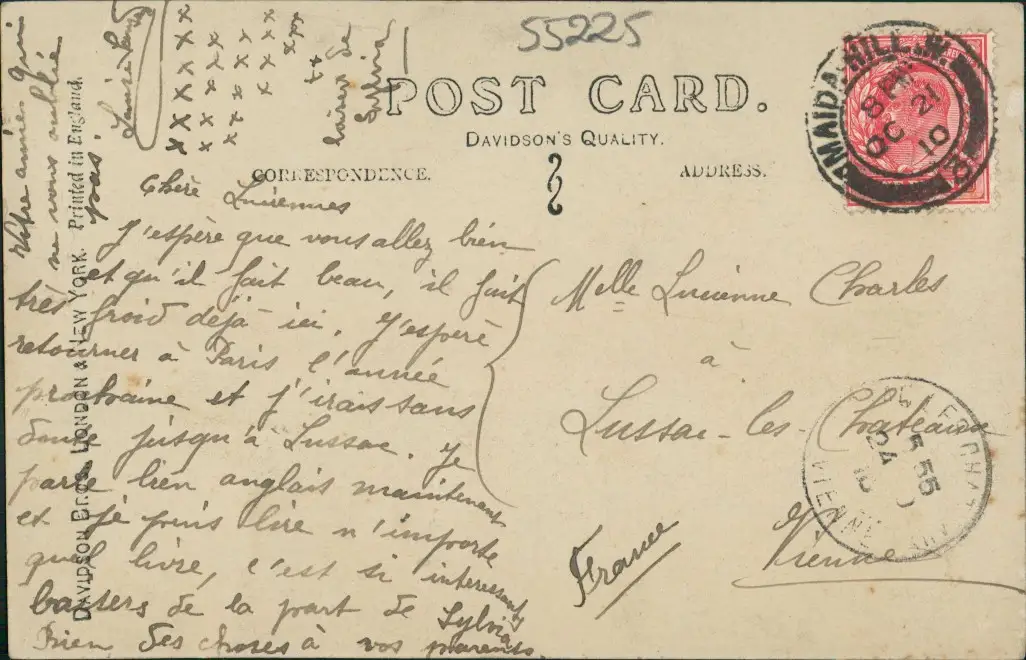 55225
POST CARD.
DAVIDSON'S QUALITY.
CORRESPONDENCE.
ADDRESS.
MAIDA HILL. W.
8 PM
OC 21
10
3
Chère Lucienne
J'espére que vous allez bien
et qu'il fait beau, il fait
très froid déjà ici. J'esperé
retourner à Paris l'année
prochaine et j'irais sans
doute jusqu'à Lussac. Je
parle bien anglais maintenant
et je puis lire n'importe
quel livre, c'est si interessant
baisers de la part de Sylvia
Bien des choses à vos parents.
Votre amies qui
ne vous oublie
pas
baisers de
Sylvia
Melle Lucienne Charles
à
Lussac-les-Chateaux
Vienne
France
5 55
24
VIENNE
DAVIDSON BROS. LONDON & NEW YORK. Printed in England.